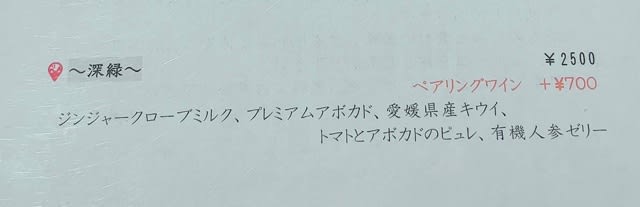 ¥2500
～深緑～
ペアリングワイン +¥700
ジンジャークローブミルク、プレミアムアボカド、愛媛県産キウイ、
トマトとアボカドのピュレ、有機人参ゼリー